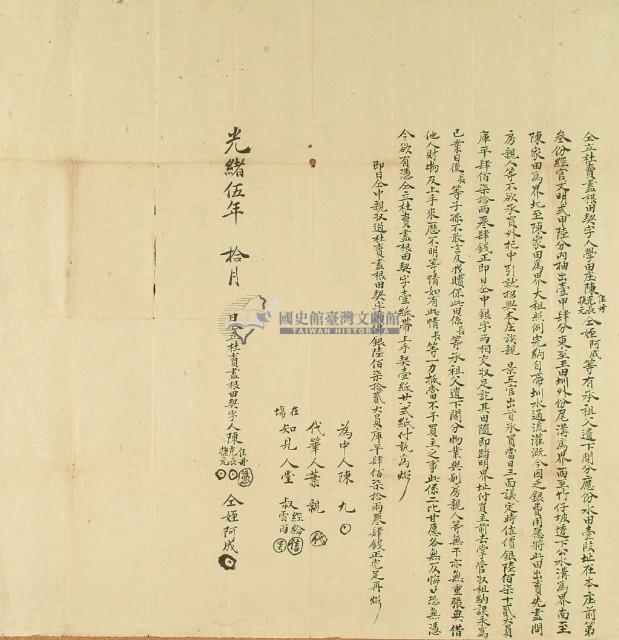 仝立杜賣盡根田契字人學田庄陳克長 任升 捷元 仝姪阿成等有承祖人遺下鬮分應份水田壹段址在本庄前第
叁份經官丈明弍甲陸分內抽出壹甲肆分東至王田圳外份尾溝為界西至竹仔坡透下公水溝為界南至
陳家田為界北至陳家田為界大租照例完納自帶圳水通流灌溉今因乏銀費用愿將此田出賣先盡問
房親人等不欲承買外托中引就招與本庄談親 景三官出首承買當日三面議定時值價銀陸佰柒十弍大員
庫平肆佰柒拾兩叁肆錢正即日仝中銀字兩相交收足訖其田隨即踏明界址付買主前去掌管收租納課永為
己業日後長等子孫不敢言及找贖保此田係長等承祖父遺下鬮分物業與別房親人等無干亦無重張典借
他人財物及上手來歷不明等情如有此情長等一力抵當不干買主之事此係二比甘愿各無反悔口恐無憑
今欲有憑仝立杜賣盡根田契字壹紙帶上手契壹紙共弍紙付執為炤
即日仝中親收過杜賣盡根田契字價銀陸佰柒拾貳大員庫平肆佰柒拾兩叁肆錢正完足再炤
為中人陳九
代筆人葉親
在塲知見人堂叔 經綸 雲雨
光緒伍年 拾月 日立杜賣盡根田契字人陳克長 任升 捷元 仝姪阿成
國史館臺灣文獻館
TAIWAN HISTORICA